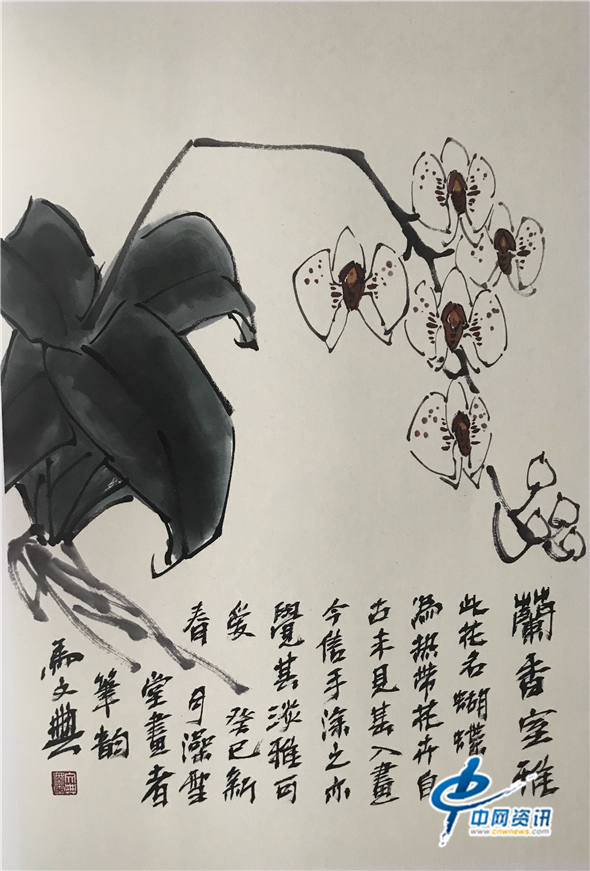 蘭香室雅
此花名蝴蝶
為热帶花卉自
古未見其入畫
今信手塗之亦
覺其淡雅可
愛 癸巳新
春 月澡
堂畫者
筆韵
馬文典
中网资讯
www.cnwnews.com